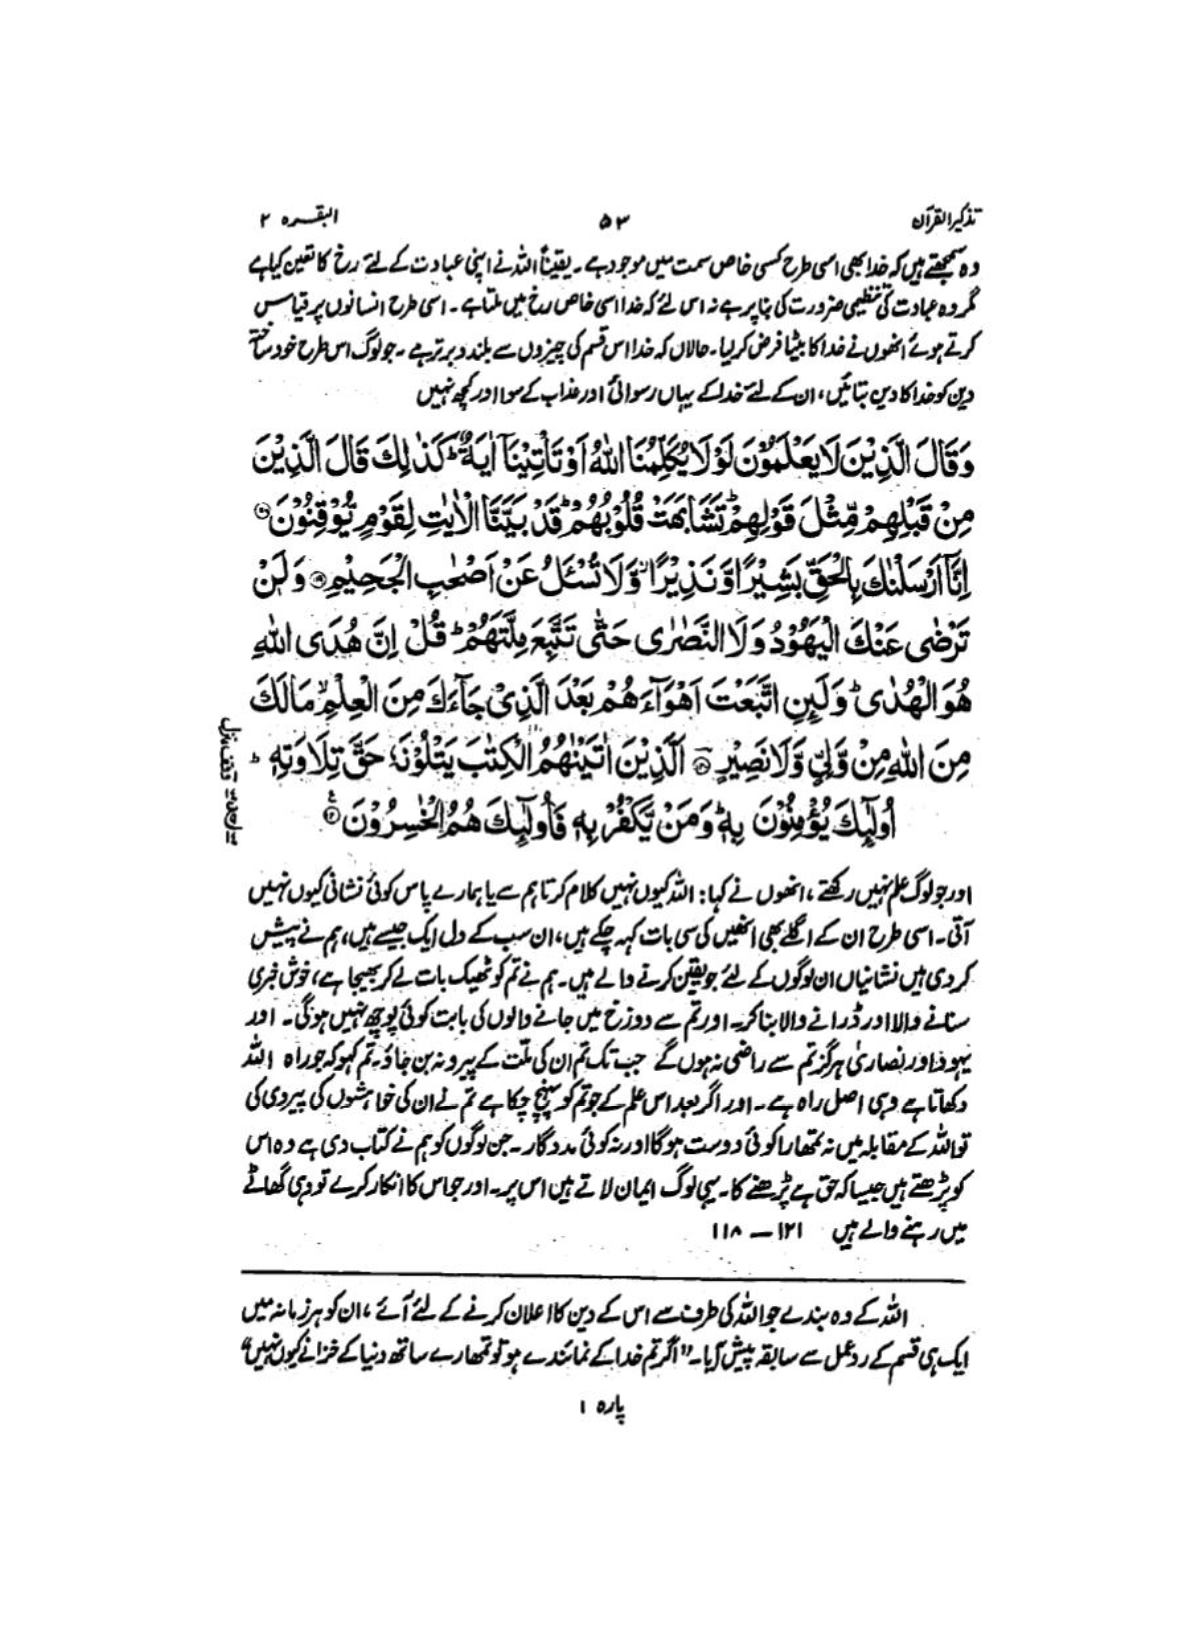 تذکیرالقرآن ۵۳ البقرہ ۲
وہ سمجھتے ہیں کہ خدا بھی اسی طرح کسی خاص سمت میں موجود ہے۔ یقیناً اللہ نے اپنی عبادت کے لئے رخ کا تعین کیا ہے
مگر وہ عبادت کی تنظیمی ضرورت کی بنا پر ہے نہ اس لئے کہ خدا اسی خاص رخ میں ملتا ہے۔ اسی طرح انسانوں پر قیاس
کرتے ہوئے انھوں نے خدا کا بیٹا فرض کرلیا۔ حالاں کہ خدا اس قسم کی چیزوں سے بلند و برتر ہے۔ جو لوگ اس طرح خود ساختہ
دین کو خدا کا دین بتائیں، ان کے لئے خدا کے یہاں رسوائی اور عذاب کے سوا اور کچھ نہیں
وَقَالَ الَّذِيْنَ لَا يَعْلَمُوْنَ لَوْ لَا يُكَلِّمُنَا اللّٰهُ اَوْ تَاْتِيْنَآ اٰيَةٌ ؕ كَذٰلِكَ قَالَ الَّذِيْنَ
مِنْ قَبْلِهِمْ مِّثْلَ قَوْلِهِمْ ؕ تَشَابَهَتْ قُلُوْبُهُمْ ؕ قَدْ بَيَّنَّا الْاٰيٰتِ لِقَوْمٍ يُّوْقِنُوْنَ
اِنَّآ اَرْسَلْنٰكَ بِالْحَقِّ بَشِيْرًا وَّنَذِيْرًا ۙ وَّلَا تُسْـَٔلُ عَنْ اَصْحٰبِ الْجَحِيْمِ وَلَنْ
تَرْضٰى عَنْكَ الْيَهُوْدُ وَلَا النَّصٰرٰى حَتّٰى تَتَّبِعَ مِلَّتَهُمْ ؕ قُلْ اِنَّ هُدَى اللّٰهِ
هُوَ الْهُدٰى ؕ وَلَىِٕنِ اتَّبَعْتَ اَهْوَآءَهُمْ بَعْدَ الَّذِيْ جَآءَكَ مِنَ الْعِلْمِ ۙ مَا لَكَ
مِنَ اللّٰهِ مِنْ وَّلِيٍّ وَّلَا نَصِيْرٍ اَلَّذِيْنَ اٰتَيْنٰهُمُ الْكِتٰبَ يَتْلُوْنَهٗ حَقَّ تِلَاوَتِهٖ ؕ
اُولٰٓىِٕكَ يُؤْمِنُوْنَ بِهٖ ؕ وَمَنْ يَّكْفُرْ بِهٖ فَاُولٰٓىِٕكَ هُمُ الْخٰسِرُوْنَ
اور جو لوگ علم نہیں رکھتے، انھوں نے کہا: اللہ کیوں نہیں کلام کرتا ہم سے یا ہمارے پاس کوئی نشانی کیوں نہیں
آتی۔ اسی طرح ان کے اگلے بھی انھیں کی سی بات کہہ چکے ہیں، ان سب کے دل ایک جیسے ہیں، ہم نے پیش
کردی ہیں نشانیاں ان لوگوں کے لئے جو یقین کرنے والے ہیں۔ ہم نے تم کو ٹھیک بات لے کر بھیجا ہے، خوش خبری
سنانے والا اور ڈرانے والا بنا کر۔ اور تم سے دوزخ میں جانے والوں کی بابت کوئی پوچھ نہیں ہوگی۔ اور
یہود اور نصاریٰ ہرگز تم سے راضی نہ ہوں گے جب تک تم ان کی ملت کے پیرو نہ بن جاؤ۔ تم کہو کہ جو راہ اللہ
دکھاتا ہے وہی اصل راہ ہے۔ اور اگر بعد اس علم کے جو تم کو پہنچ چکا ہے تم نے ان کی خواہشوں کی پیروی کی
تو اللہ کے مقابلہ میں نہ تمھارا کوئی دوست ہوگا اور نہ کوئی مددگار۔ جن لوگوں کو ہم نے کتاب دی ہے وہ اس
کو پڑھتے ہیں جیسا کہ حق ہے پڑھنے کا۔ یہی لوگ ایمان لاتے ہیں اس پر۔ اور جو اس کا انکار کرے تو وہی گھاٹے
میں رہنے والے ہیں ۱۲۱ — ۱۱۸
اللہ کے وہ بندے جو اللہ کی طرف سے اس کے دین کا اعلان کرنے کے لئے آئے، ان کو ہر زمانہ میں
ایک ہی قسم کے رد عمل سے سابقہ پیش آیا۔ "اگر تم خدا کے نمائندے ہو تو تمھارے ساتھ دنیا کے خزانے کیوں نہیں"
پارہ ۱